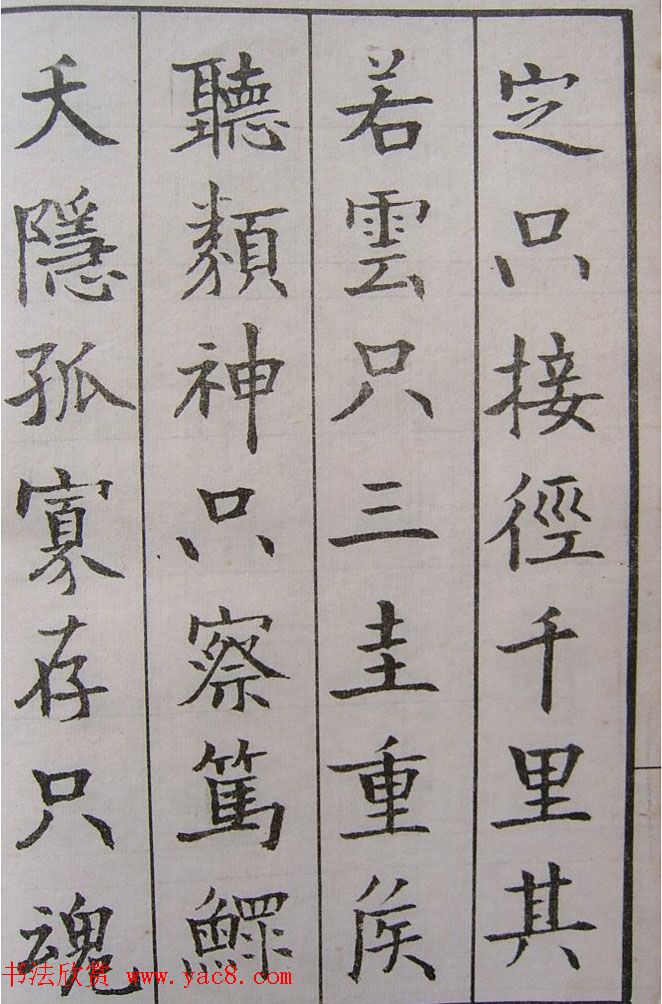 定只接徑千里其
若雲只三圭重侯
聽類神只察篤鰥
夭隱孤寡存只魂
书法欣赏 www.yac8.com